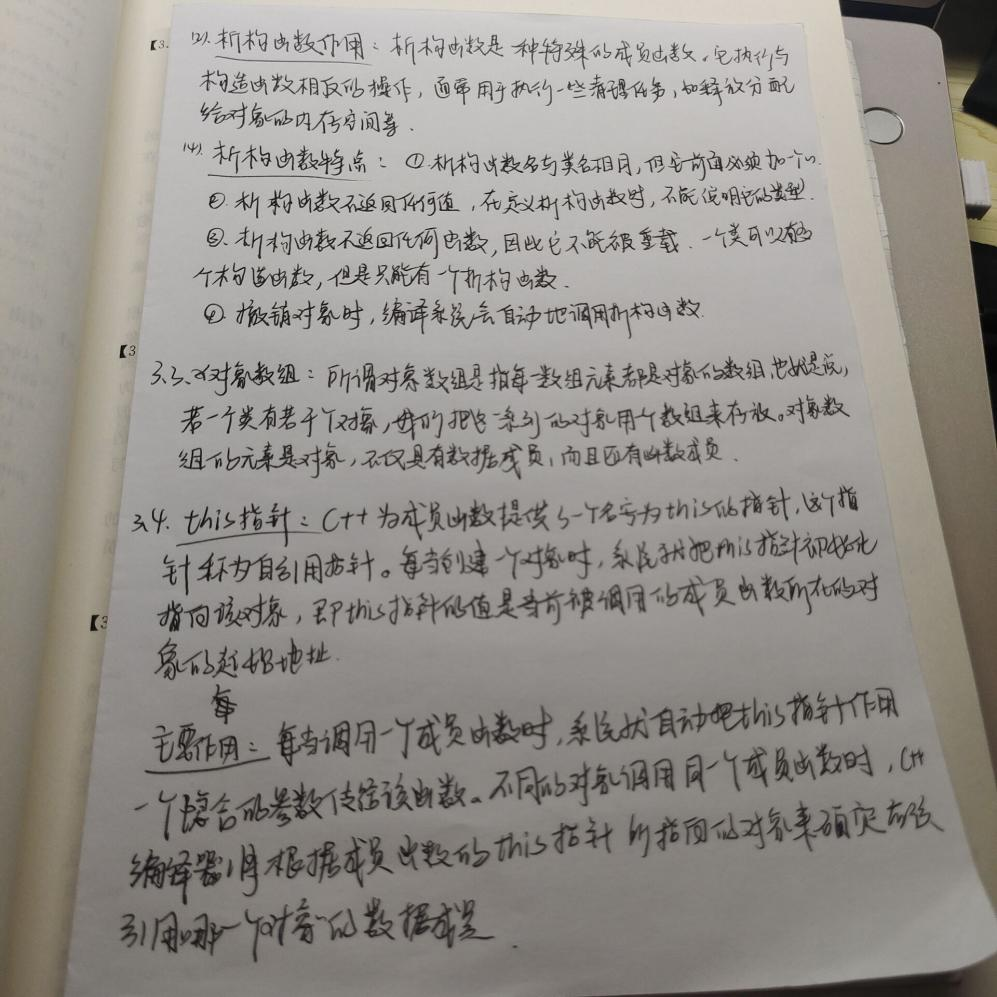 (2). 析构函数作用：析构函数是一种特殊的成员函数。它执行与
构造函数相反的操作，通常用于执行一些清理任务，如释放分配
给对象的内存空间等.
(4). 析构函数特点：①.析构函数名与类名相同，但它前面必须加一个~.
②. 析构函数不返回任何值，在定义析构函数时，不能说明它的类型.
③. 析构函数不返回任何函数，因此它不能被重载. 一个类可以有多
个构造函数，但是只能有一个析构函数.
④. 撤销对象时，编译系统会自动地调用析构函数.
3.3. 对象数组：所谓对象数组是指每一数组元素都是对象的数组，也就是说，
若一个类有若干个对象，我们把这一系列的对象用一个数组来存放。对象数
组的元素是对象，不仅具有数据成员，而且还有函数成员.
3.4. this指针：C++为成员函数提供了一个名字为this的指针，这个指
针称为自引用指针。每当创建一个对象时，系统就把this指针初始化
指向该对象，即this指针的值是当前被调用的成员函数所在的对
象的起始地址.
每
主要作用：每当调用一个成员函数时，系统就自动把this指针作用
一个隐含的参数传给该函数。不同的对象调用同一个成员函数时，C++
编译器将根据成员函数的this指针所指向的对象来确定应该
引用哪一个对象的数据成员.
【3.
【3
【3